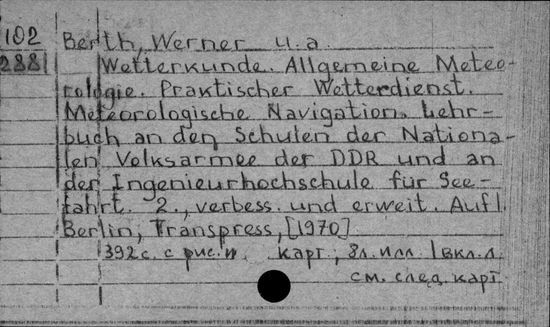 102 Berth, Werner u.a.
2881 Wetterkunde. Allgemeine Meteo-
rologie. Praktischer Wetterdienst.
Meteorologische Navigation. Lehr-
buch an den Schulen der Nationa-
len Volksarmee der DDR und an
der Ingenieurhochschule für See-
fahrt. 2., verbess. und erweit. Aufl.
Berlin, Transpress, [1970]
392 с. с рис. и карт., 8 л. илл. 1 вкл. л.
см. след. карт.